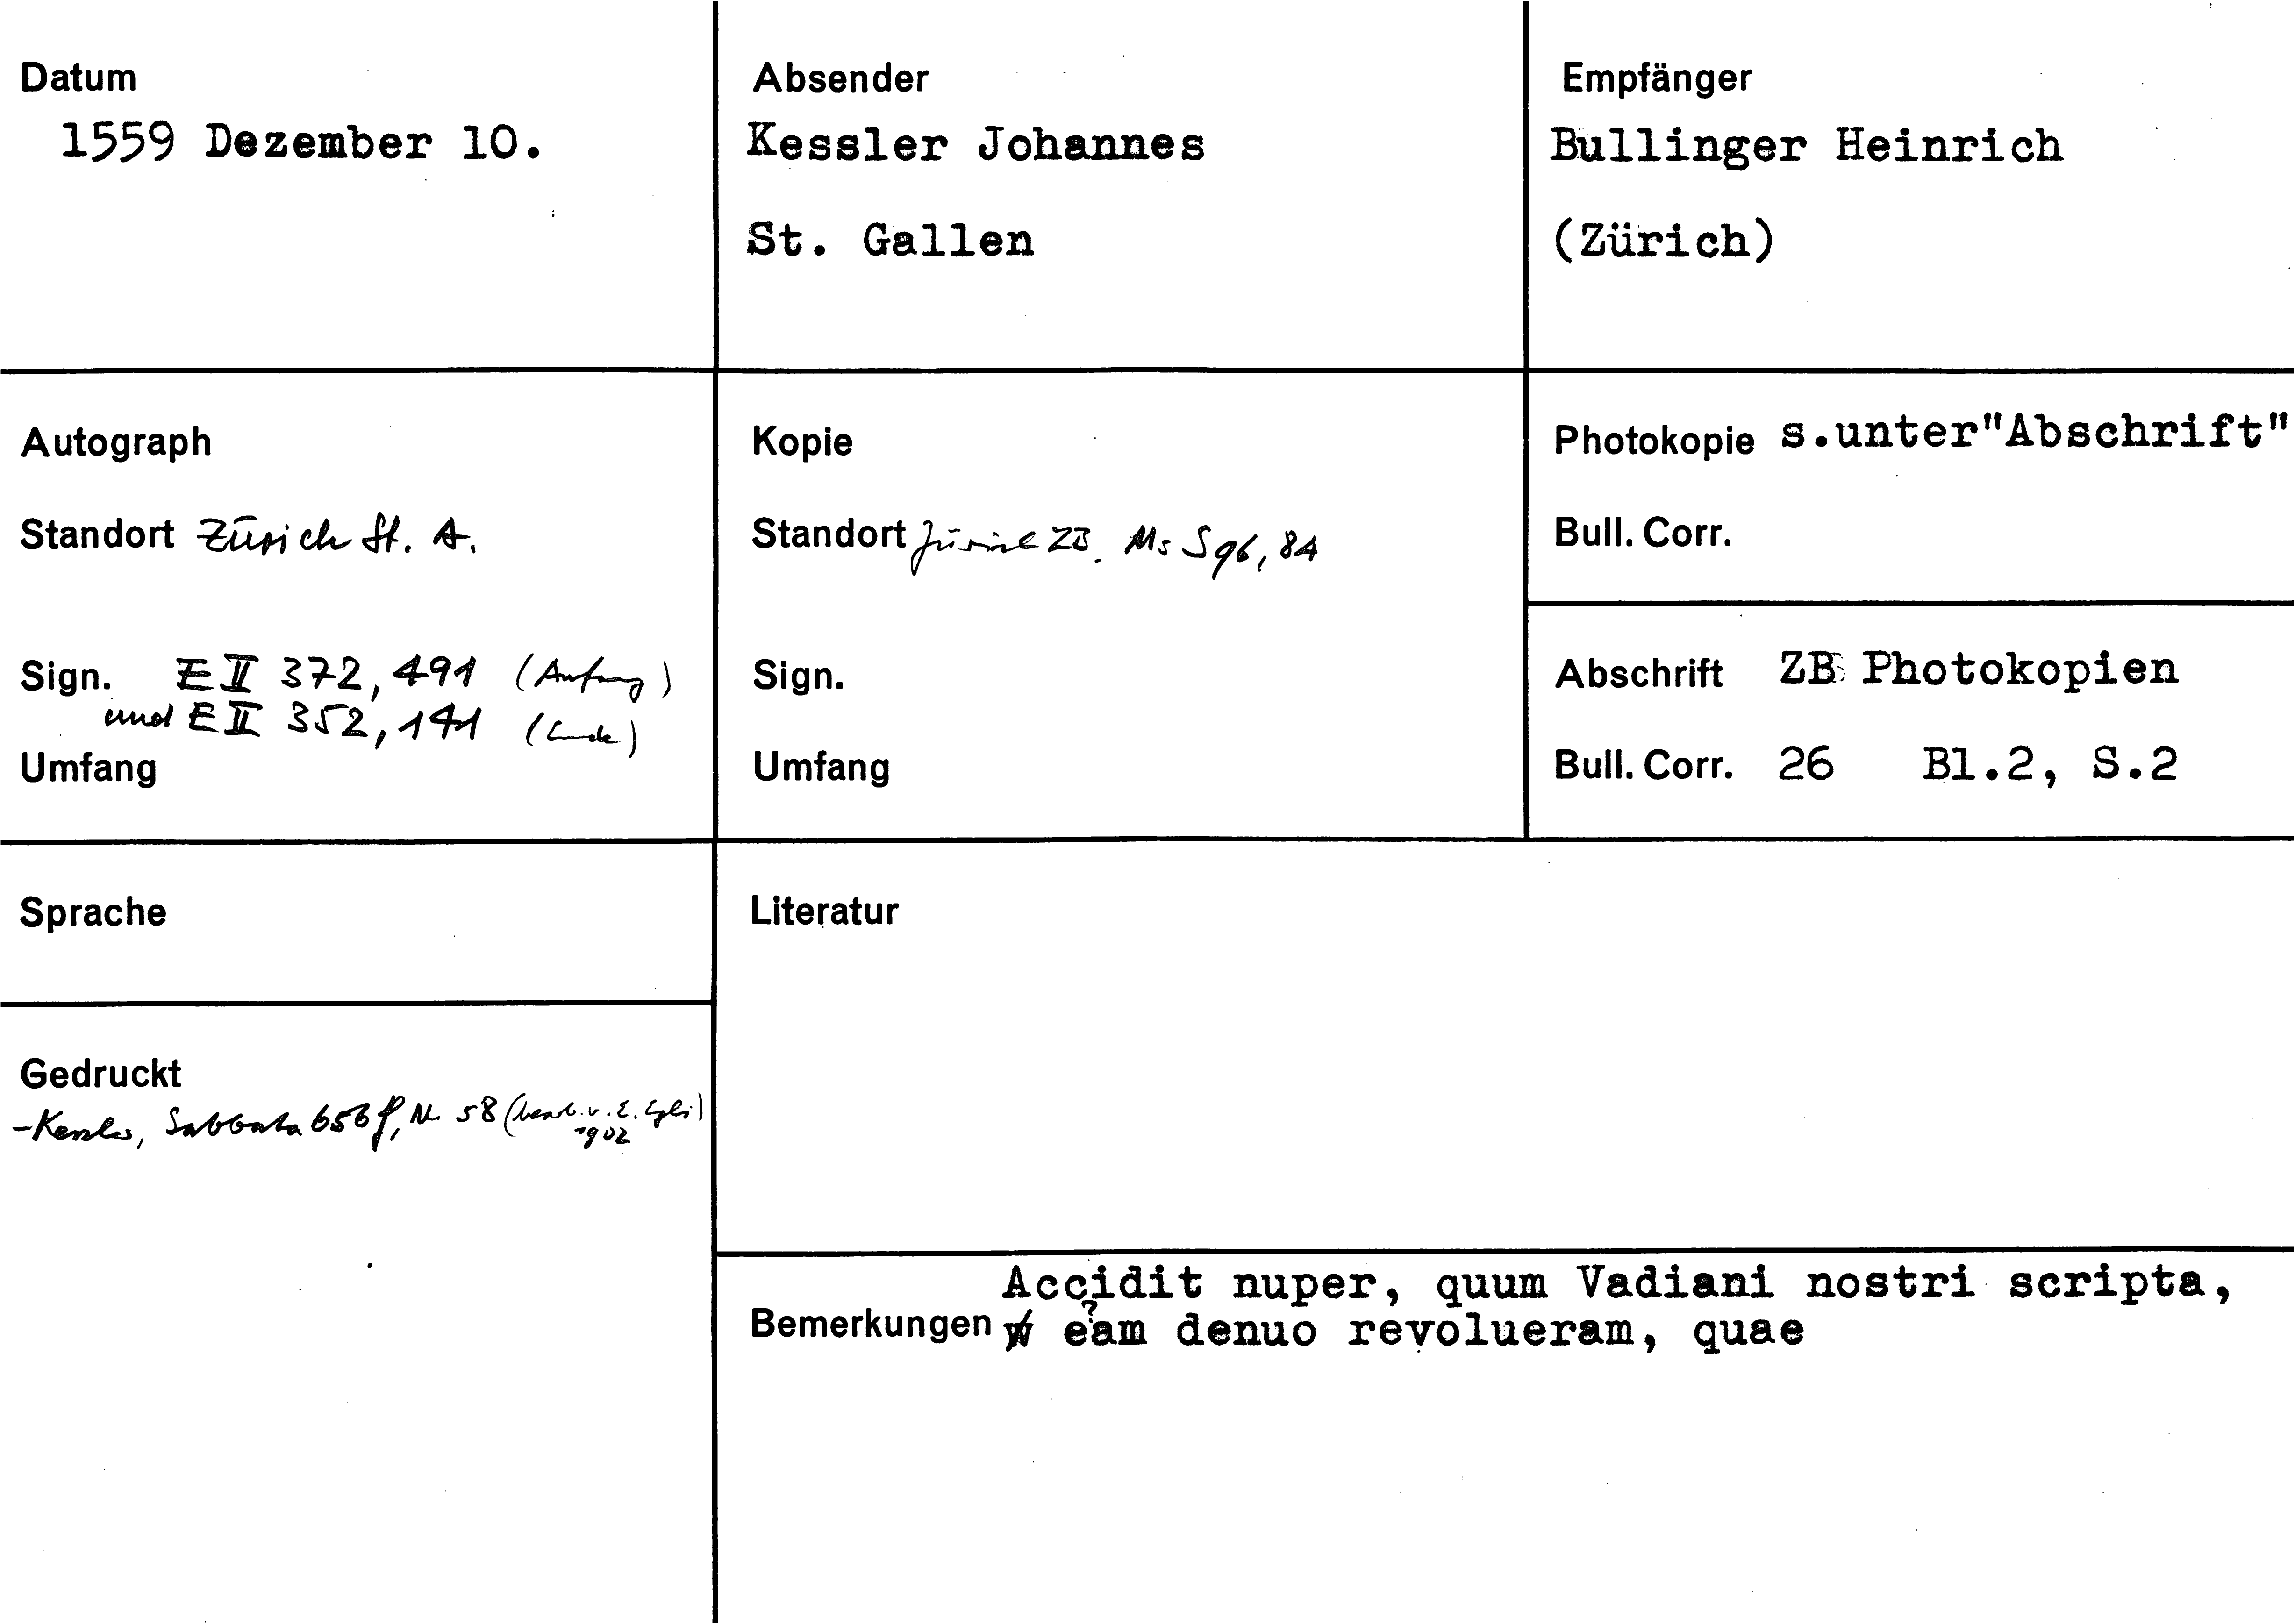 Datum
1559 Dezember 10.
Absender
Kessler Johannes
St. Gallen
Empfänger
Bullinger Heinrich
(Zürich)
Autograph
Standort Zürich St. A.
Sign. E II 372, 491 (Anfang)
und E II 352, 141 (Ende)
Umfang
Kopie
Standort Zürich ZB. Ms S 96, 84
Sign.
Umfang
Photokopie s.unter"Abschrift"
Bull. Corr.
Abschrift ZB Photokopien
Bull. Corr. 26 Bl.2, S.2
Sprache
Gedruckt
- Kessler, Sabbata 656 f, Nr. 58 (bearb. v. E. Egli)
1902
Literatur
Bemerkungen
Accidit nuper, quum Vadiani nostri scripta,
?
eam denuo revolueram, quae